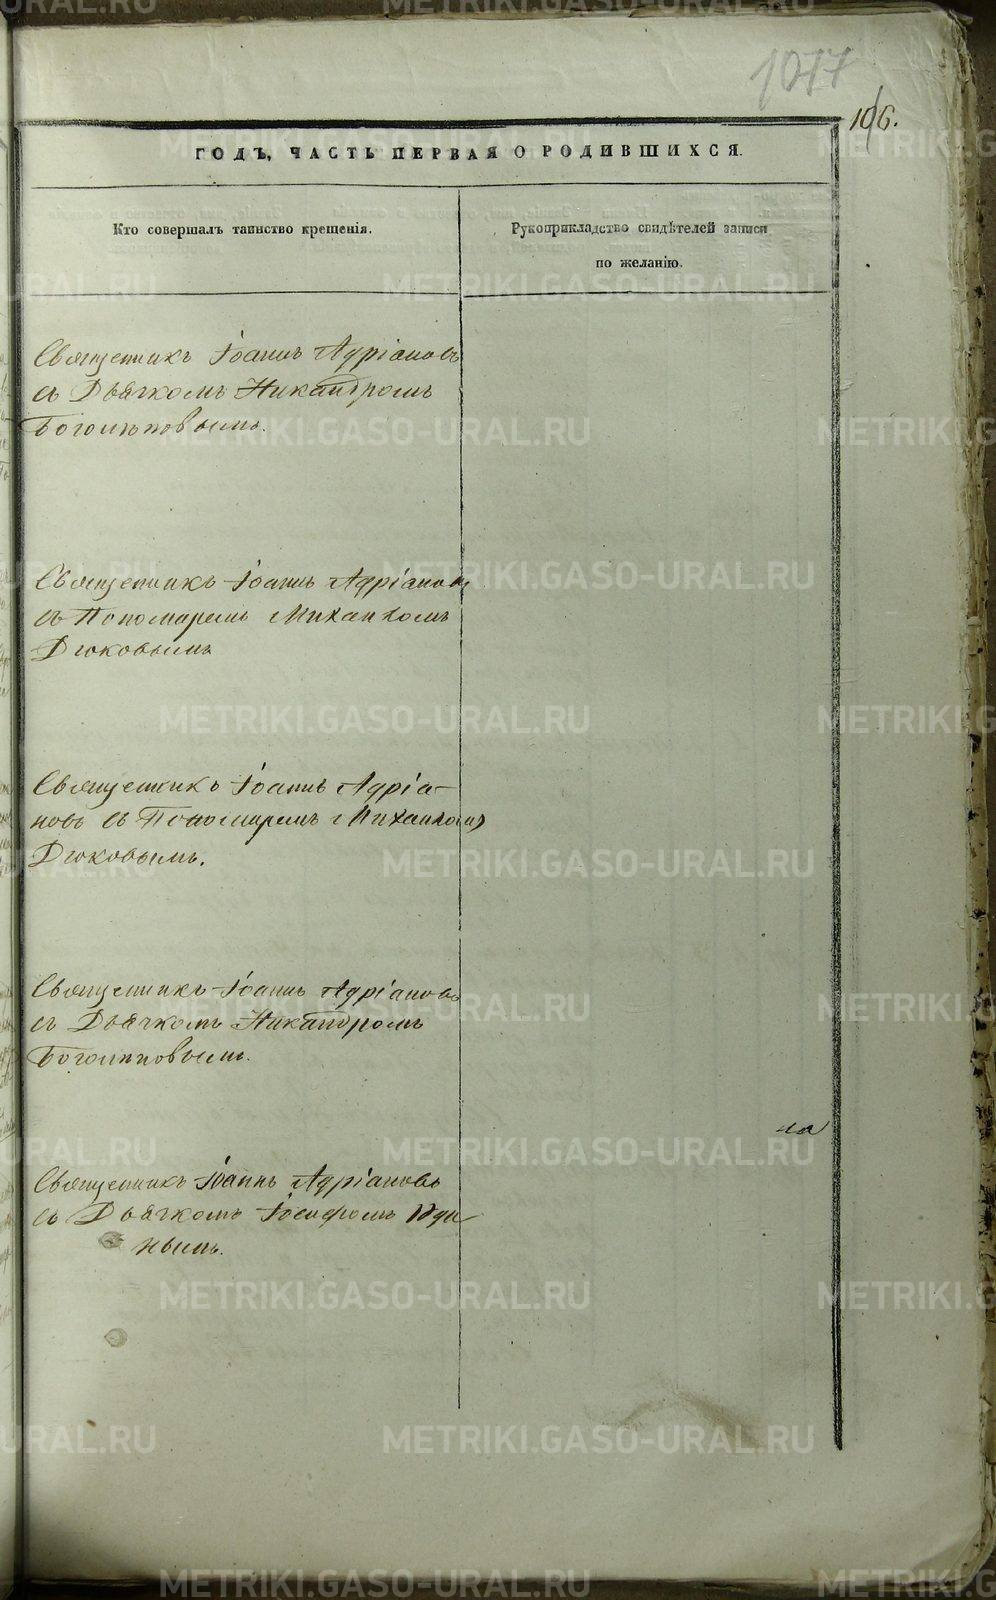 1077
106.
ГОДЪ, ЧАСТЬ ПЕРВАЯ О РОДИВШИХСЯ.
Кто совершалъ таинство крещенія.
Рукоприкладство свидѣтелей записи
по желанію.
Священникъ Іоаннъ Адріановъ
съ Дьячкомъ Никандромъ
Боголѣповымъ.
Священникъ Іоаннъ Адріановъ
съ Пономаремъ Михаиломъ
Дюковымъ
Священникъ Іоаннъ Адріа-
новъ съ Пономаремъ Михаиломъ
Дюковымъ.
Священникъ Іоаннъ Адріановъ
съ Дьячкомъ Никандромъ
Боголѣповымъ.
на
Священникъ Іоаннъ Адріановъ
съ Дьячкомъ Іосифомъ Юди
нымъ.
METRIKI.GASO-URAL.RU